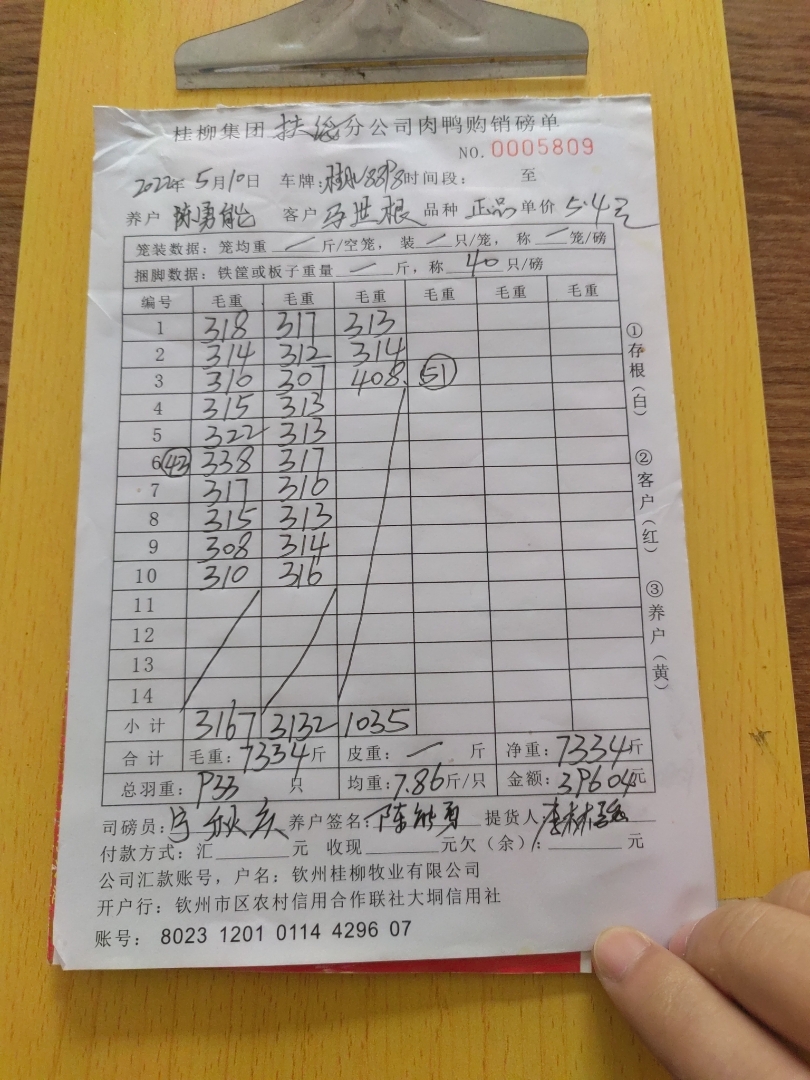 桂柳集团 扶绥 分公司肉鸭购销磅单
NO. 0005809
2022年 5月10日 车牌: 时间段: 至
养户 陈勇能 客户 马世根 品种 正品 单价 5.4元
笼装数据: 笼均重 一 斤/空笼, 装 一 只/笼, 称 一 笼/磅
捆脚数据: 铁筐或板子重量 一 斤, 称 40 只/磅
编号 毛重 毛重 毛重 毛重 毛重 毛重
1 318 317 313
2 314 312 314
3 310 307 408 51
4 315 313
5 322 313
6 43 338 317
7 317 310
8 315 313
9 308 314
10 310 316
11
12
13
14
小计 3167 3132 1035
合计 毛重: 7334斤 皮重: 一 斤 净重: 7334斤
总羽重: 933 只 均重: 7.86斤/只 金额: 39604元
司磅员: 养户签名: 提货人:
付款方式: 汇 元 收现 元欠(余): 元
公司汇款账号, 户名: 钦州桂柳牧业有限公司
开户行: 钦州市区农村信用合作联社大垌信用社
账号: 8023 1201 0114 4296 07
①存根(白)
②客户(红)
③养户(黄)